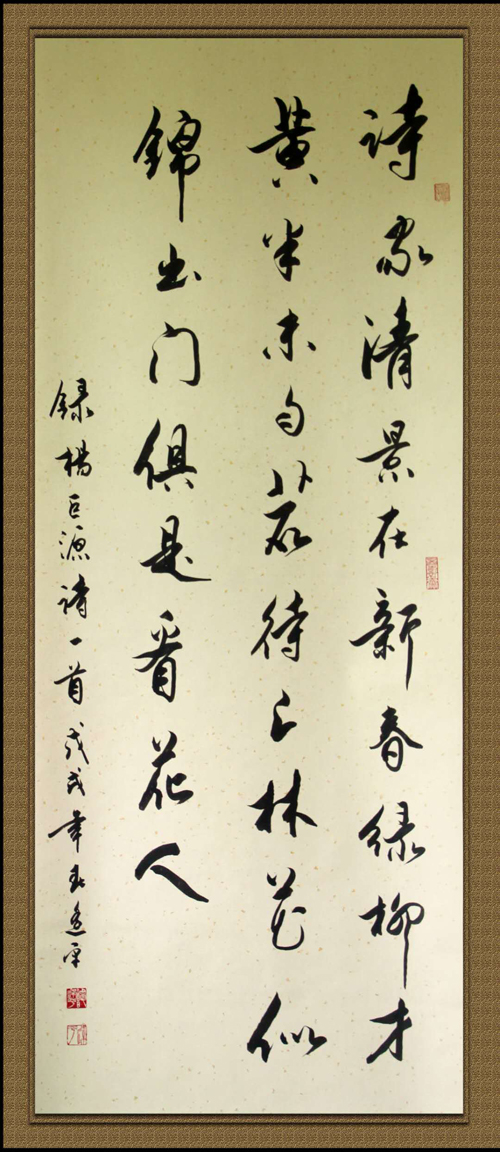 诗家清景在新春绿柳才
黄半未匀若待上林花似
锦出门俱是看花人
録楊巨源诗一首戊戌年春